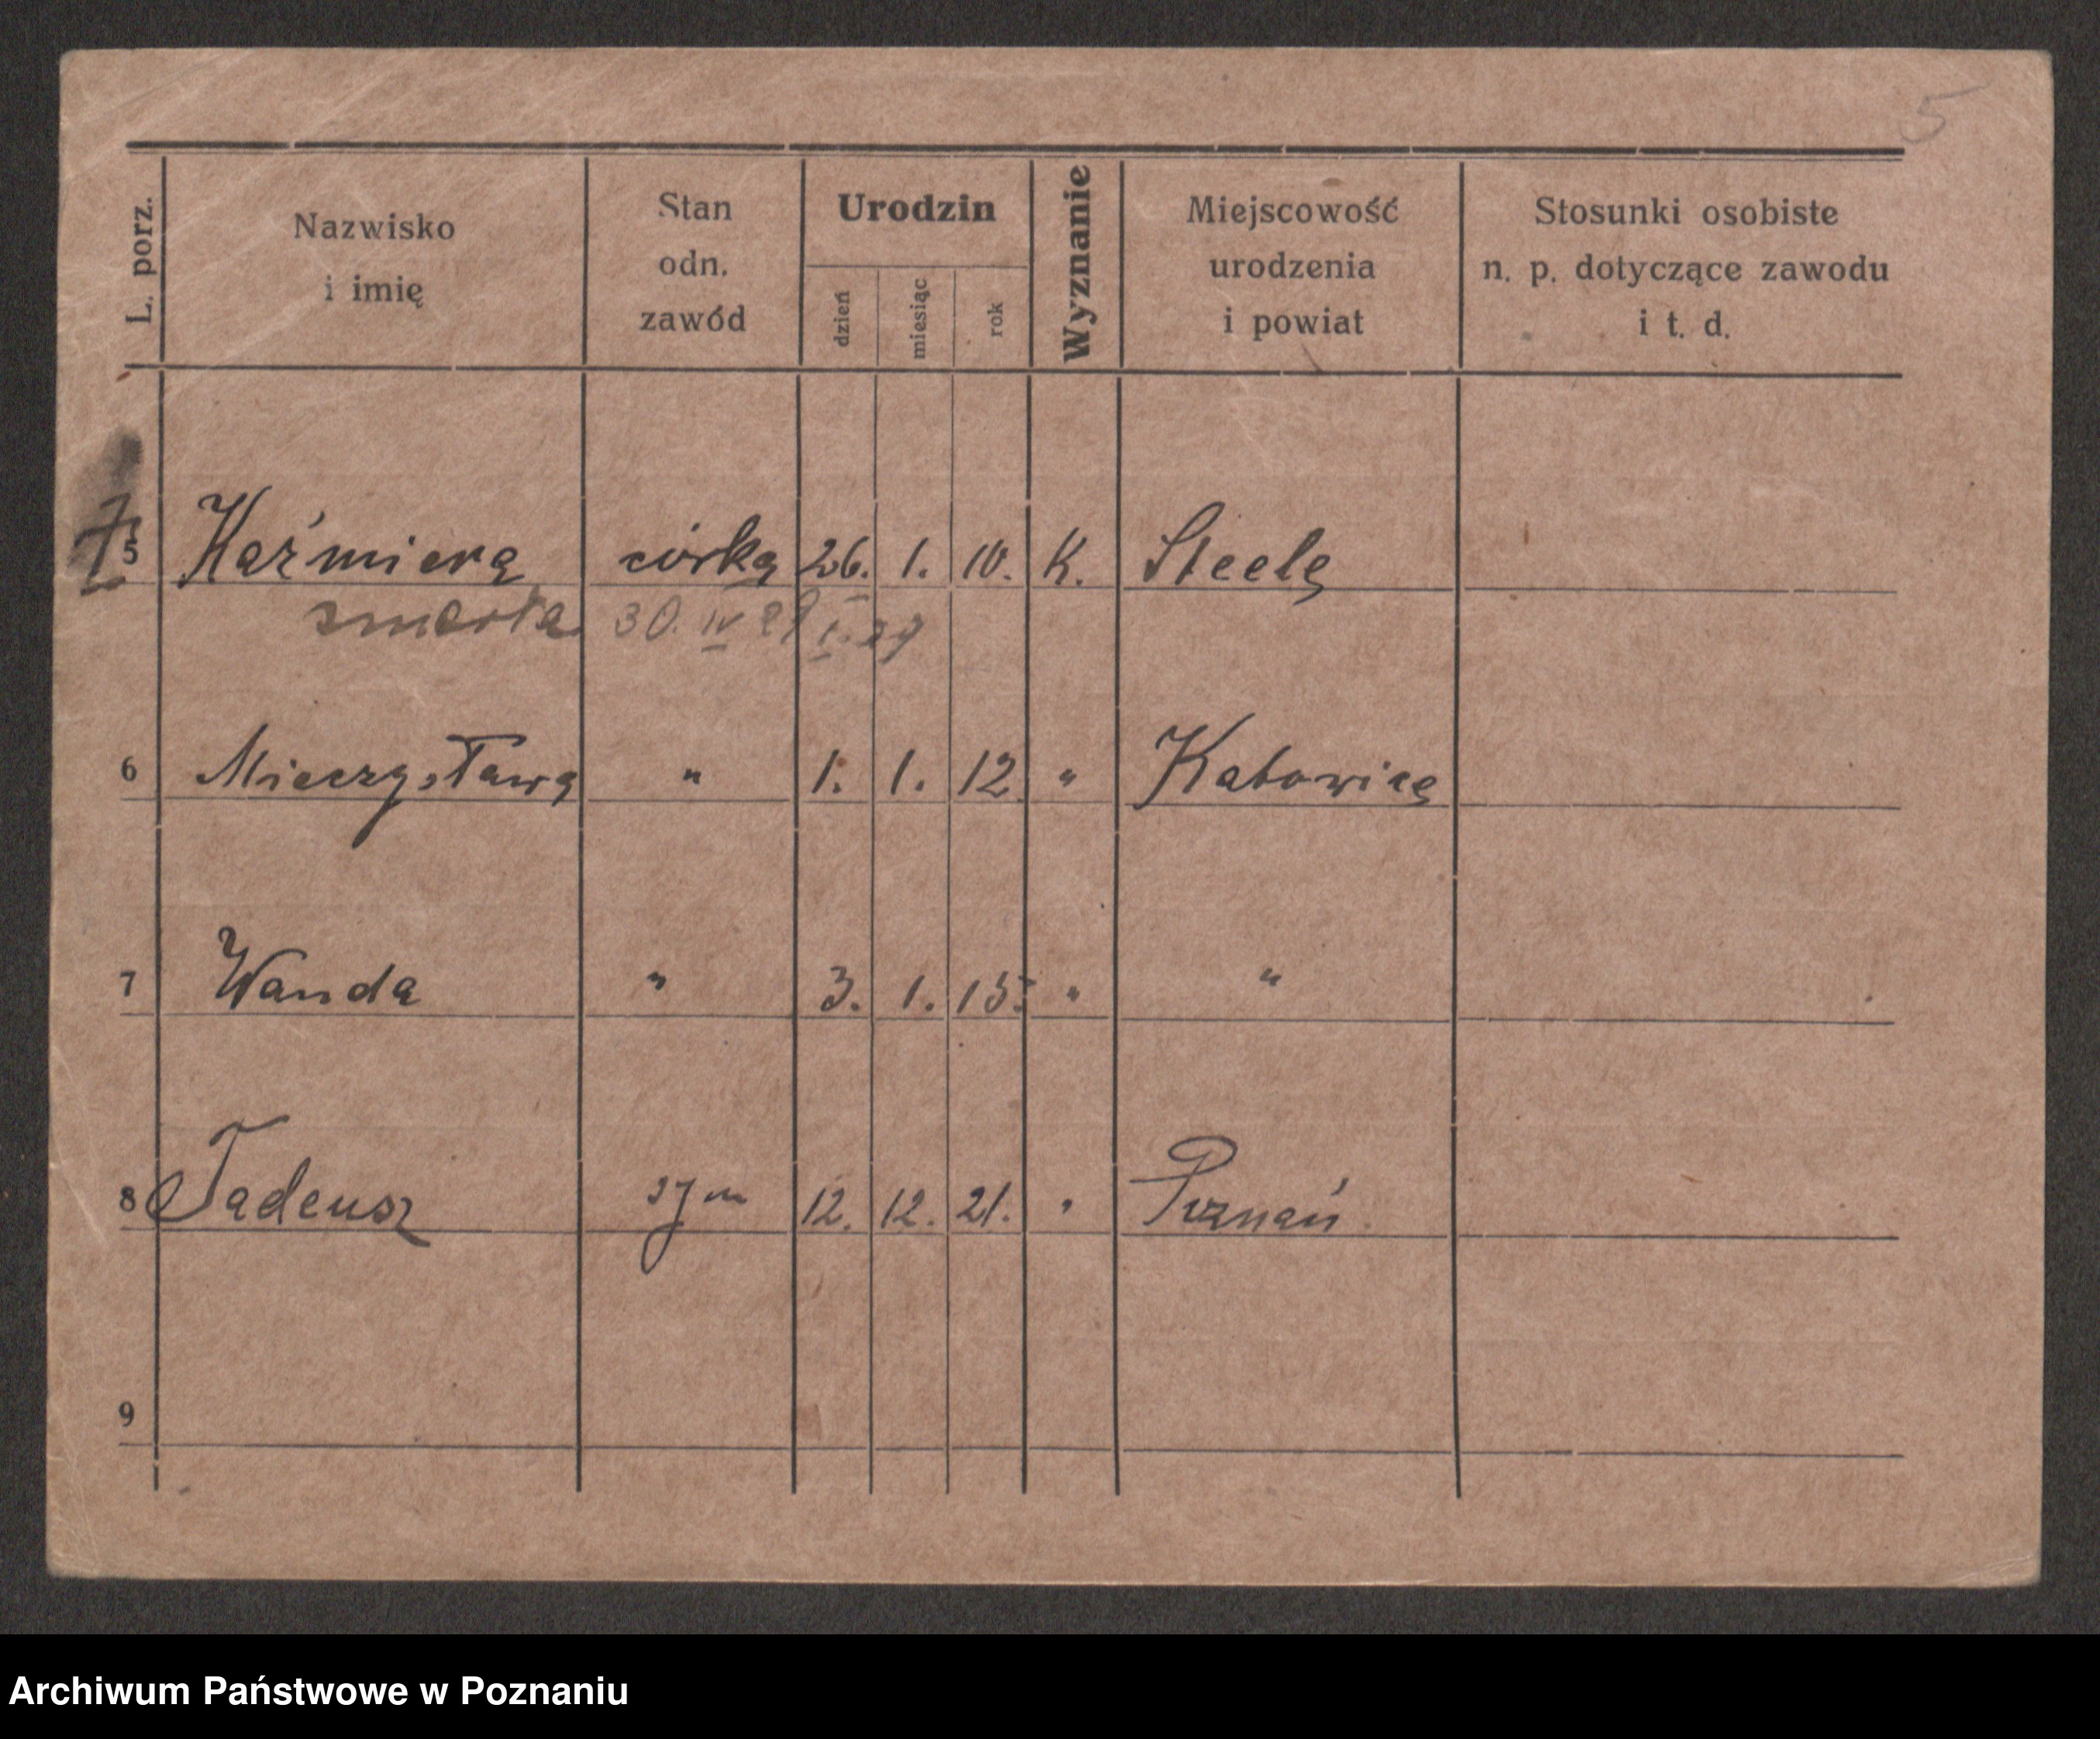 5
L. porz.
Nazwisko
i imię
Stan
odn.
zawód
Urodzin
dzień
miesiąc
rok
Wyznanie
Miejscowość
urodzenia
i powiat
Stosunki osobiste
n. p. dotyczące zawodu
i t. d.
5 Kaźmiera córka 26. 1. 10. K. Steele
zmarła 30. IV 29
6 Mieczysława " 1. 1. 12 " Katowice
7 Wanda " 3. 1. 15. " "
8 Tadeusz syn 12. 12. 21. " Poznań
9
Archiwum Państwowe w Poznaniu